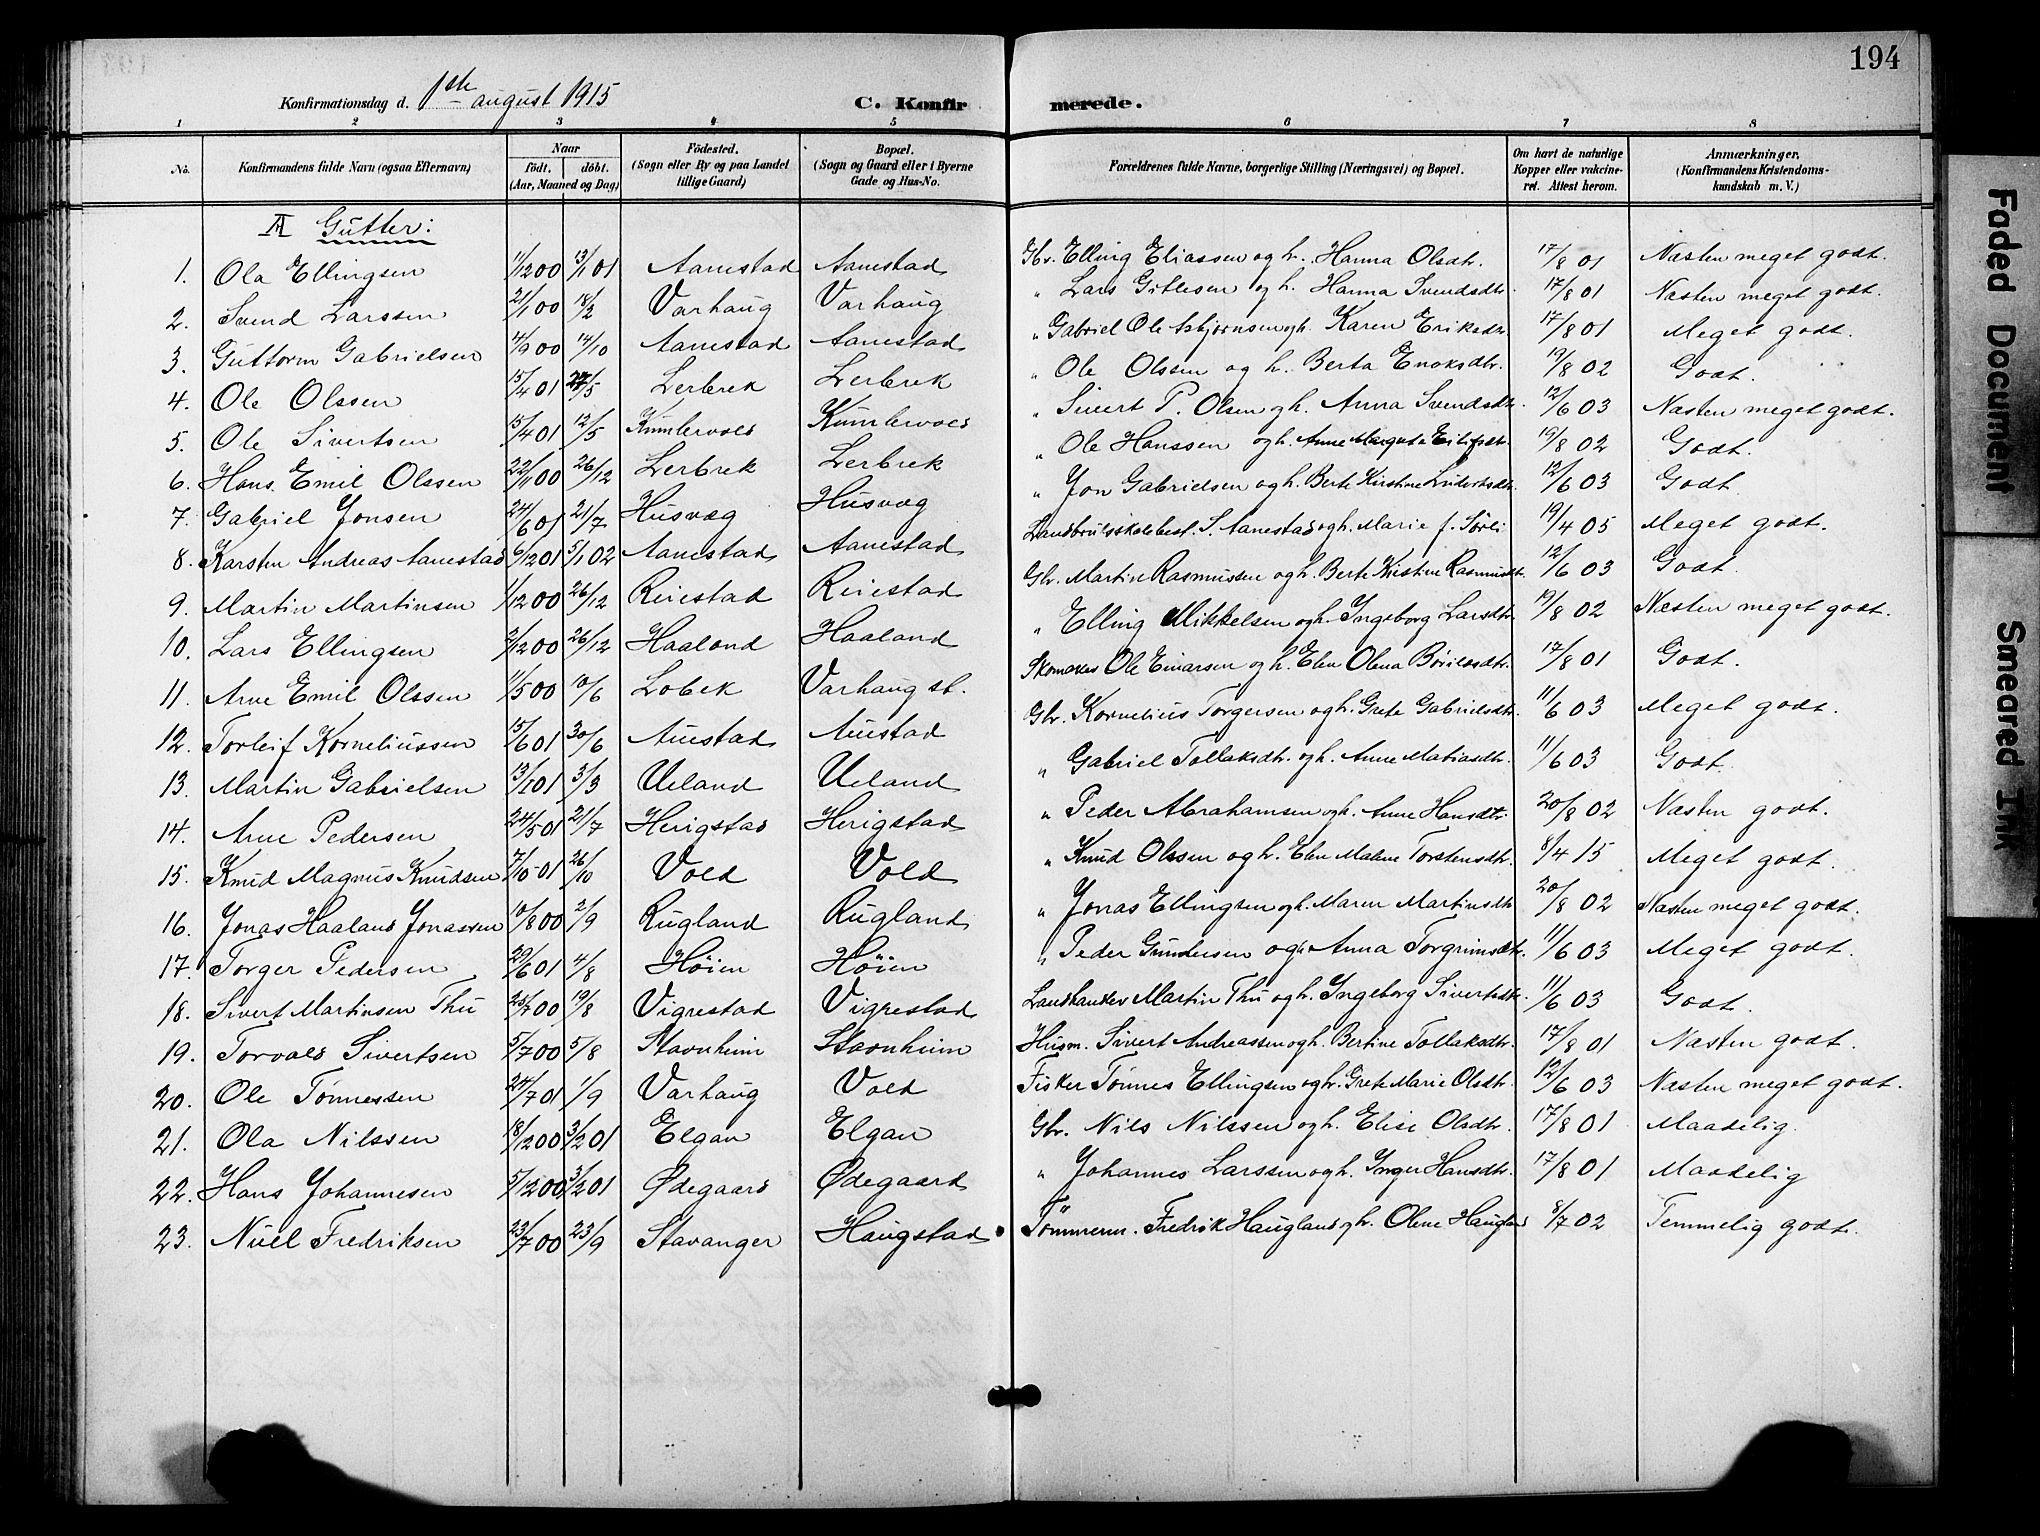 194
Konfirmationsdag d. 1ste august 1915 C. Konfirmerede.
1 2 3 4 5 6 7 8
No. Konfirmandens fulde Navn (ogsaa Efternavn) Naar födt. döbt. (Aar, Maaned og Dag) Födested. (Sogn eller By og paa Landet tillige Gaard) Bopæl. (Sogn og Gaard eller i Byerne Gade og Hus-No. Forældrenes fulde Navne, borgerlige Stilling (Næringsvei) og Bopæl. Om havt de naturlige Kopper eller vakcineret. Attest herom. Anmærkninger. (Konfirmandens Kristendomskundskab m. V.)
A Gutter:
1. Ola Ellingsen 1/12 00 13/1 01 Aanestad Aanestad Gbr. Elling Eliassen og h. Hanna Olsdtr. 17/8 01 Næsten meget godt.
2. Svend Larssen 21/1 00 18/2 Varhaug Varhaug " Lars Gitlesen og h. Hanna Svendsdtr. 17/8 01 Næsten meget godt.
3. Guttorm Gabrielsen 14/9 00 14/10 Aanestad Aanestad " Gabriel Ole Asbjørnsen og h. Karen Eriksdtr. 17/8 01 Meget godt.
4. Ole Olssen 15/4 01 27/5 Lerbrek Lerbrek " Ole Olssen og h. Berta Enoksdtr. 19/8 02 Godt.
5. Ole Sivertsen 15/4 01 12/5 Kumlevoes Kumlevoes " Sivert P. Olsen og h. Anna Svendsdtr. 12/6 03 Næsten meget godt.
6. Hans Emil Olssen 22/11 00 26/12 Lerbrek Lerbrek " Ole Hanssen og h. Anne Margreta Eilifsdtr. 19/8 02 Godt.
7. Gabriel Jonsen 24/6 01 21/7 Husvæg Husvæg " Jon Gabrielsen og h. Berte Kirstine 12/6 03 Godt.
8. Karsten Andreas Aanestad 6/12 01 5/1 02 Aanestad Aanestad Landbruksskolebest. S. Aanestad og h. Marie f. Sørli 19/4 05 Meget godt.
9. Martin Martinsen 1/12 00 26/12 Reiestad Reiestad Gbr. Martin Rasmussen og h. Berte Kistine Rasmusdtr. 12/6 03 Godt.
10. Lars Ellingsen 2/12 00 26/12 Haaland Haaland " Elling Mikkelsen og h. Ingeborg Larsdtr. 19/8 02 Næsten meget godt.
11. Arne Emil Olssen 11/5 00 10/6 Lobek Varhaug st. Skomaker Ole Einarsen og h. Elen Olena 17/8 01 Godt.
12. Torleif Korneliussen 15/6 01 30/6 Auestad Auestad Gbr. Kornelius Torgersen og h. Grete Gabrielsdtr. 11/6 03 Meget godt.
13. Martin Gabrielsen 13/1 01 3/3 Ueland Ueland " Gabriel Tollaksdtr. og h. Anne Matiasdtr. 11/6 03 Godt.
14. Arne Pedersen 24/5 01 21/7 Herigstad Herigstad " Peder Abrahamsen og h. Anne Hansdtr. 20/8 02 Næsten godt.
15. Knud Magnus Knudsen 7/10 01 26/10 Vold Vold " Knud Olssen og h. Elen Malene Torstensdtr. 8/4 15 Meget godt.
16. Jonas Haaland Jonassen 10/8 00 2/9 Rugland Rugland " Jonas Ellingsen og h. Maren Martinsdtr. 20/8 02 Næsten meget godt.
17. Torger Pedersen 29/6 01 4/8 Høien Høien " Peder Gundersen og h. Anna Torgrimsdtr. 11/6 03 Meget godt.
18. Sivert Martinsen Thu 25/7 00 19/8 Vigrestad Vigrestad Landhandler Martin Thu og h. Ingeborg Sivertsdtr. 11/6 03 Godt.
19. Torvald Sivertsen 5/7 00 5/8 Stavnheim Stavnheim Husm. Sivert Andreassen og h. Bertine Tollaksdtr. 17/8 01 Næsten godt.
20. Ole Tønnessen 24/7 01 1/9 Varhaug Vold Fisker Tønnes Ellingsen og h. Grete Marie Olsdtr. 12/6 03 Næsten meget godt.
21. Ola Nilssen 18/12 00 3/2 01 Elgan Elgan Gbr. Nils Nilssen og h. Elise Olsdtr. 17/8 01 Maadelig.
22. Hans Johannesen 5/12 00 3/2 01 Ødegaard Ødegaard " Johannes Larssen og h. Inger Hansdtr. 17/8 01 Maadelig
23. Nuel Fredriksen 23/7 00 23/9 Stavanger Haugstad Tømrerm. Fredrik Haugland og h. Olene Haugland 8/7 02 Temmelig godt.
Faded Document
Smeared Ink